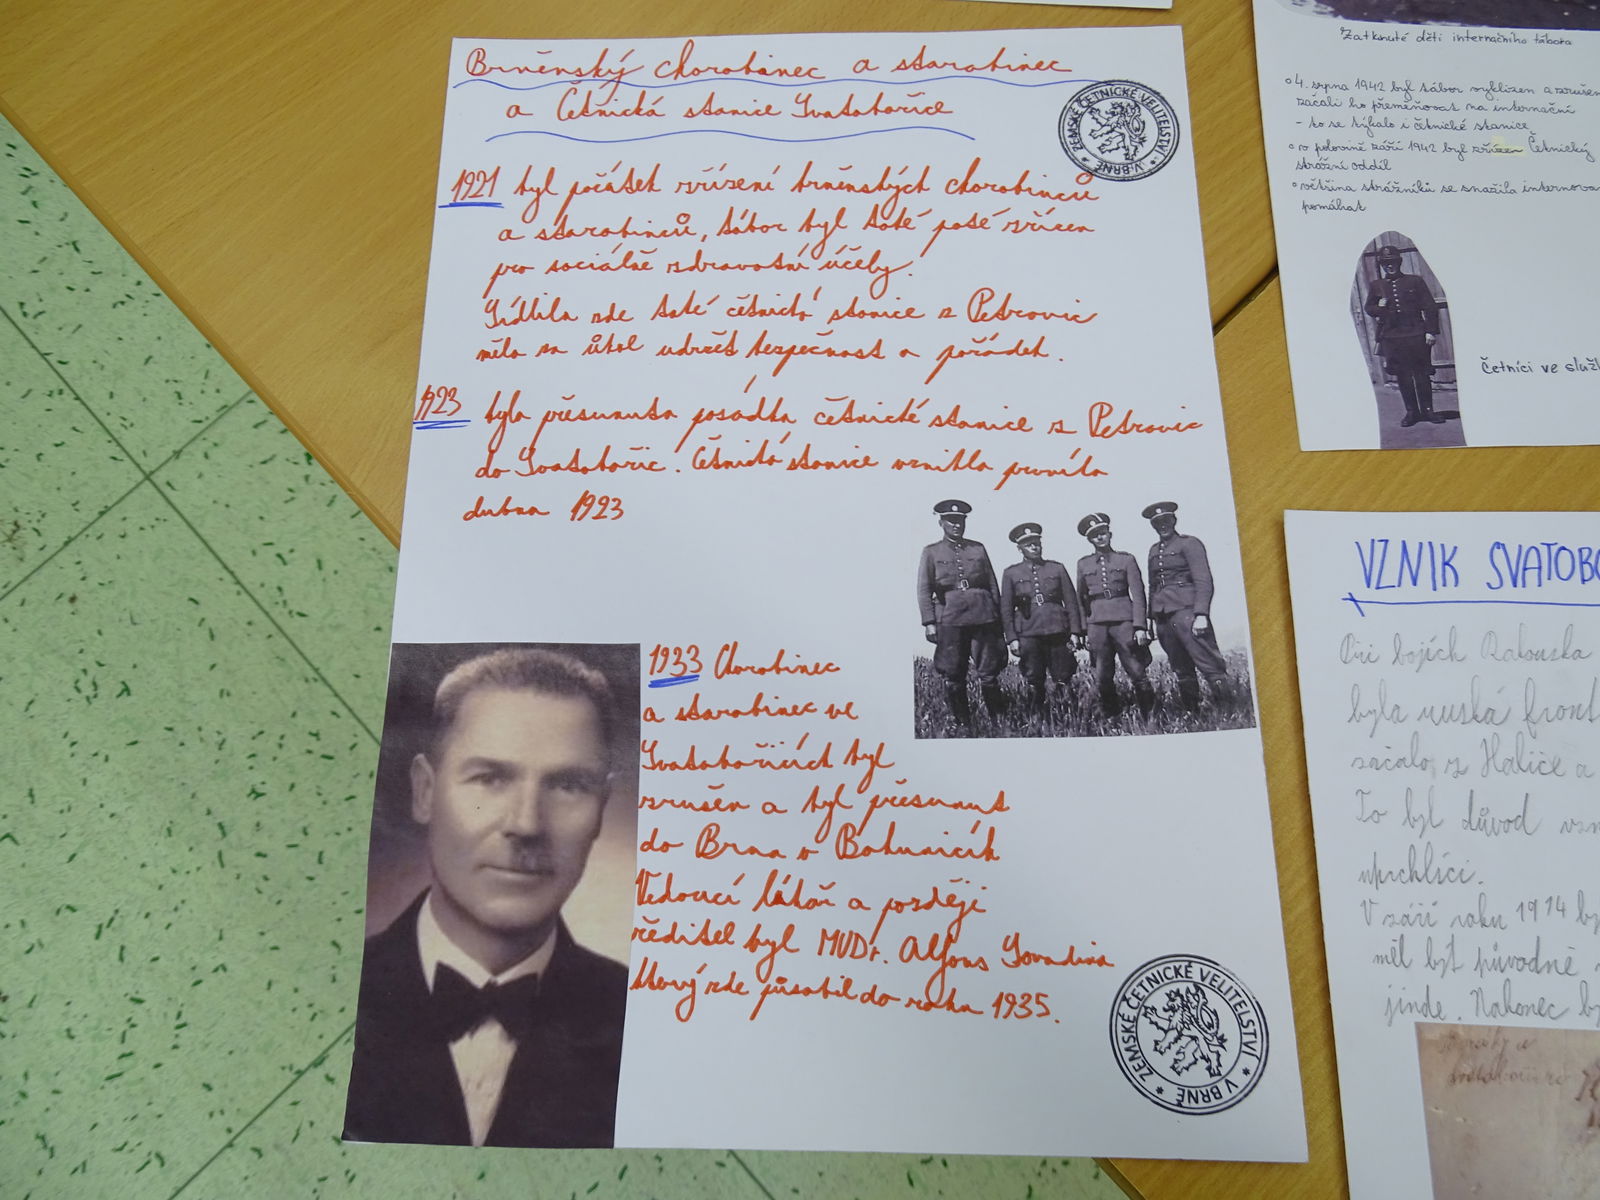 Brněnský chorobinec a starobinec
a Četnická stanice Svatobořice
ZEMSKÉ ČETNICKÉ VELITELSTVÍ * V BRNĚ *
1921 byl počátek zřízení brněnských chorobinců
a starobinců, tábor byl také poté zřízen
pro sociálně zdravotní účely.
Sídlila zde také četnická stanice z Petrovic
měla za úkol udržet bezpečnost a pořádek.
1923 byla přesunuta posádka četnické stanice z Petrovic
do Svatobořic. Četnická stanice vznikla prvního
dubna 1923
1933 Chorobinec
a starobinec ve
Svatobořicích byl
zrušen a byl přesunut
do Brna v Bohunicích
Vedoucí lékař a později
ředitel byl MUDr. Alfons
který zde působil do roku 1935.
ZEMSKÉ ČETNICKÉ VELITELSTVÍ * V BRNĚ *
Zatknuté děti internačního tábora
4. srpna 1942 byl tábor vyklizen a zrušen
začali ho přeměňovat na internační
- to se týkalo i četnické stanice
v polovině září 1942 byl zřízen Četnický
strážní oddíl
většina strážníků se snažila internova
pomáhat
Četníci ve služb
VZNIK SVATOBO
Při bojích Rakouska
byla ruská front
začalo z Haliče a
To byl důvod vzn
uprchlíci.
V září roku 1914 by
měl být původně
jinde. Nakonec by